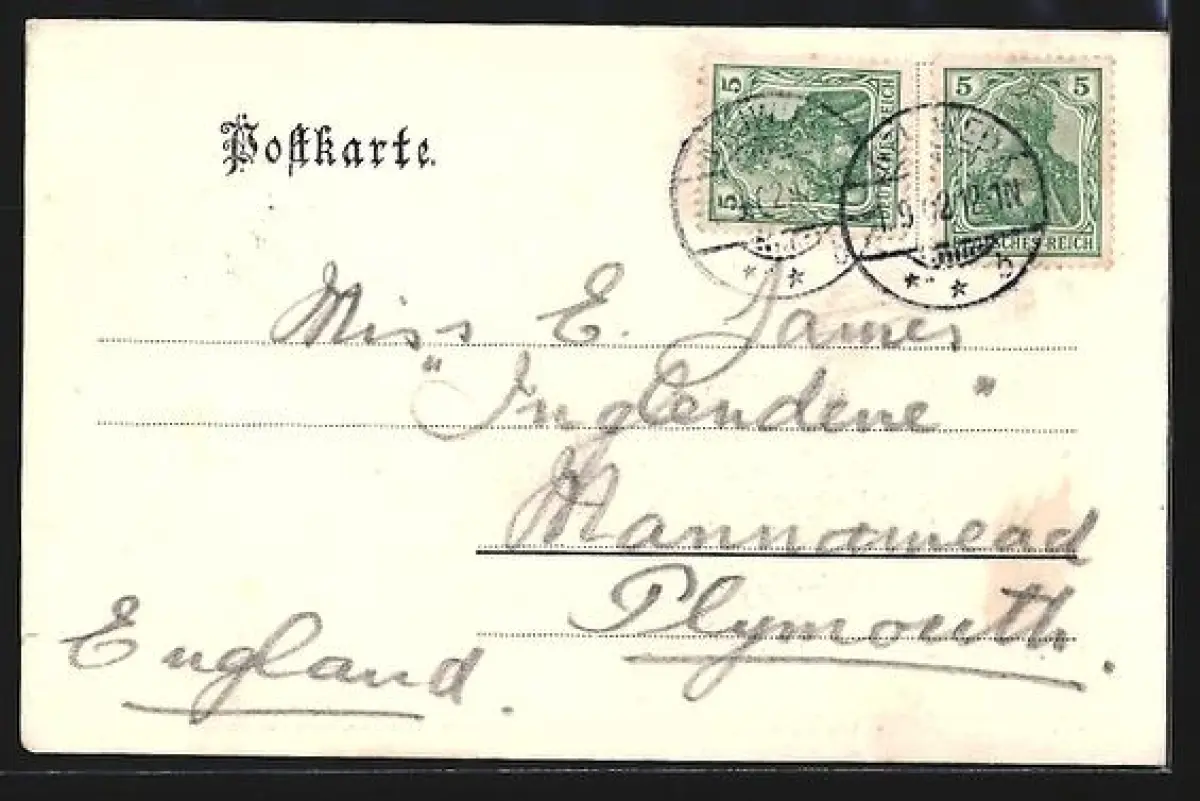 Postkarte.
5 DEUTSCHES REICH 5
5 DEUTSCHES REICH 5
9 02 12-1N
* * b
Miss E. James
"Inglendene"
Mannamead
Plymouth.
England.